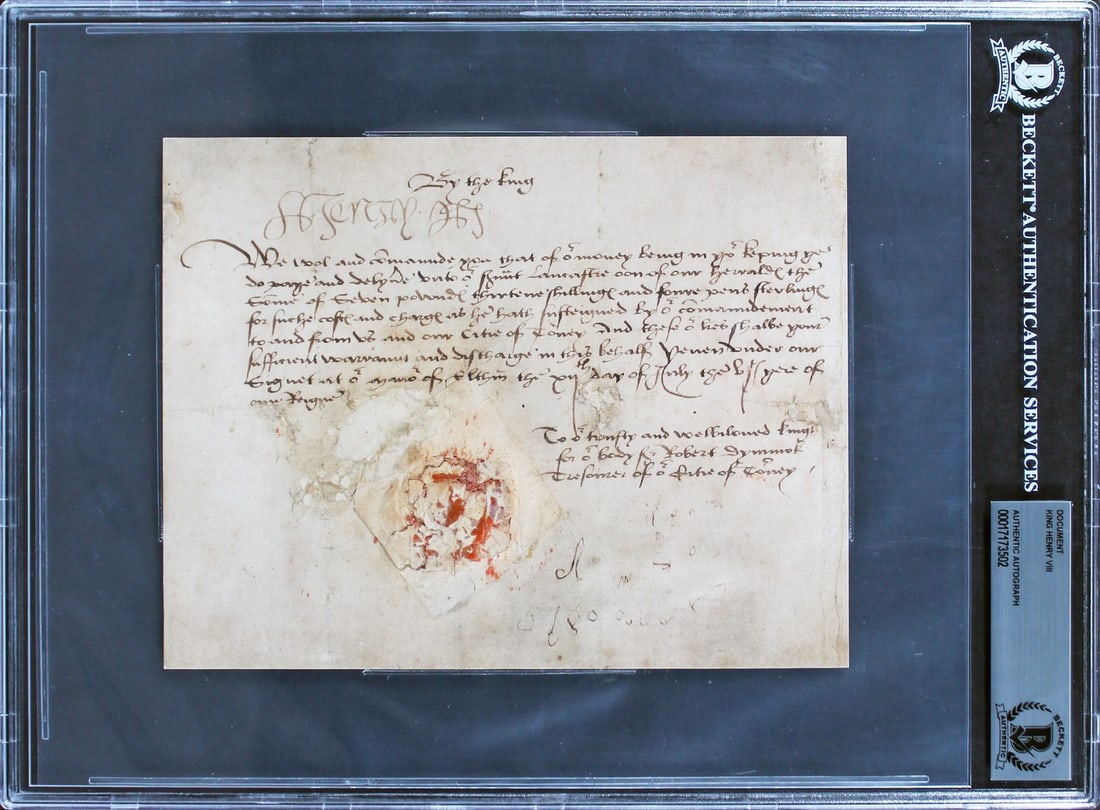 By the king
Henry R
We wol and comaunde you that of oʳ money being in yoʳ keping ye
do paye and delyuʳe vnto oʳ sʳuñt Lancastre oon of our herauldꝭ the
Some of Seven powndꝭ thirtene shillingꝭ and foure pens sterlingꝭ
for suche costꝭ and chargꝭ as he hath susteigned by oʳ comaundement
to and from vs and our Citie of Torney And these oʳ lres shalbe your
sufficient warraunt and discharge in this behalf Yeven vnder our
Signet at oʳ manoʳ of Elthm̃ the xijᵗʰ day of July the vij yere of
our Reigne
To oʳ trusty and welbiloued knight
for oʳ body sʳ Robert dymmok
Tresourer of oʳ Citie of Torney
BECKETT AUTHENTIC
BECKETT AUTHENTICATION SERVICES
DOCUMENT
KING HENRY VIII
AUTHENTIC AUTOGRAPH
00017173502
BECKETT AUTHENTIC